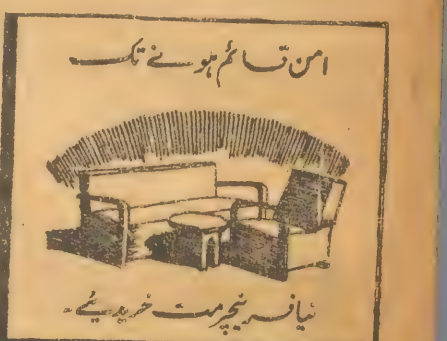 امن قائم ہونے تک
نیا فرنیچر مت خریدیئے۔